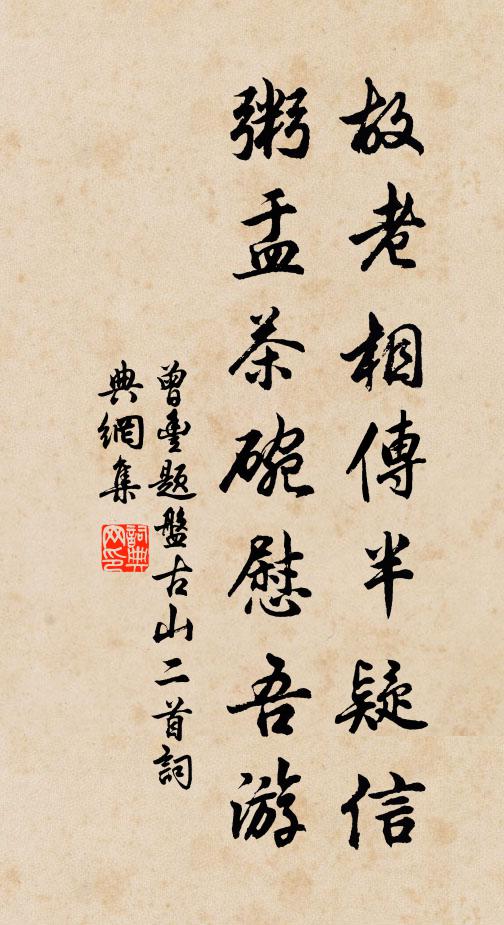 故老相傳半疑信
粥盂茶碗慰吾游
曾豐題盤古山二首詞
典網集
詞典
网印